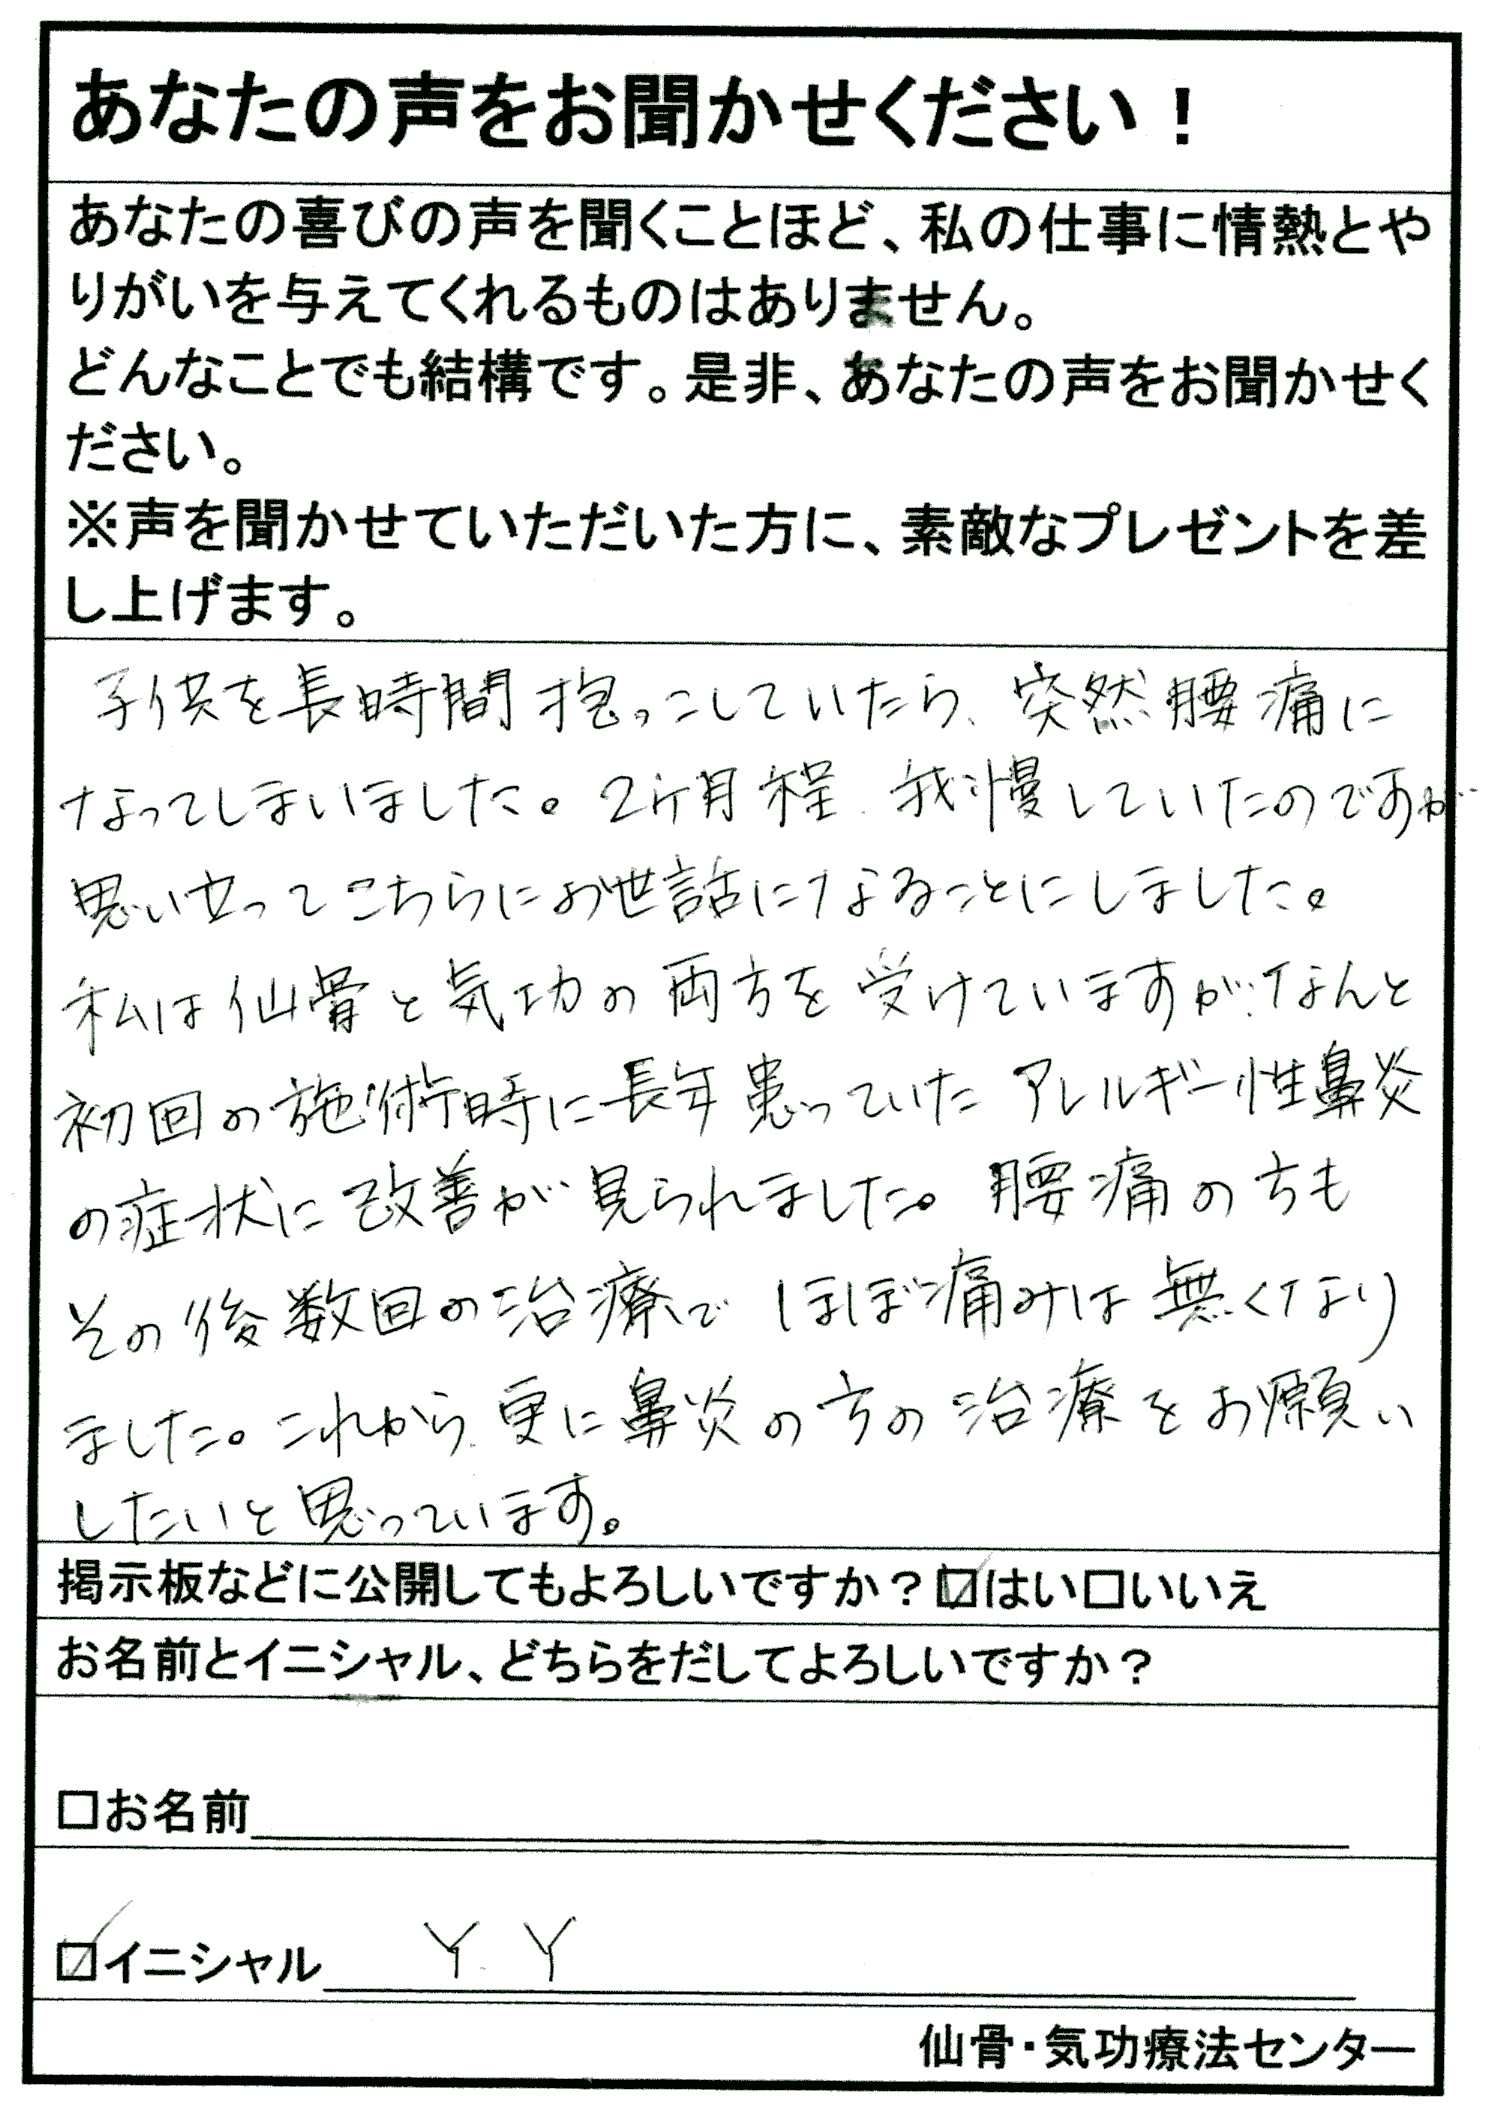 あなたの声をお聞かせください！
あなたの喜びの声を聞くことほど、私の仕事に情熱とや
りがいを与えてくれるものはありません。
どんなことでも結構です。是非、あなたの声をお聞かせく
ださい。
※声を聞かせていただいた方に、素敵なプレゼントを差
し上げます。
子供を長時間抱っこしていたら、突然腰痛に
なってしまいました。2ヶ月程、我慢していたのですが
思い立ってこちらにお世話になることにしました。
私は仙骨と気功の両方を受けていますが、なんと
初回の施術時に長年患っていたアレルギー性鼻炎
の症状に改善が見られました。腰痛の方も
その後数回の治療でほぼ痛みは無くなり
ました。これから、更に鼻炎の方の治療をお願い
したいと思っています。
掲示板などに公開してもよろしいですか？☑はい□いいえ
お名前とイニシャル、どちらをだしてよろしいですか？
□お名前
☑イニシャル Y.Y
仙骨・気功療法センター